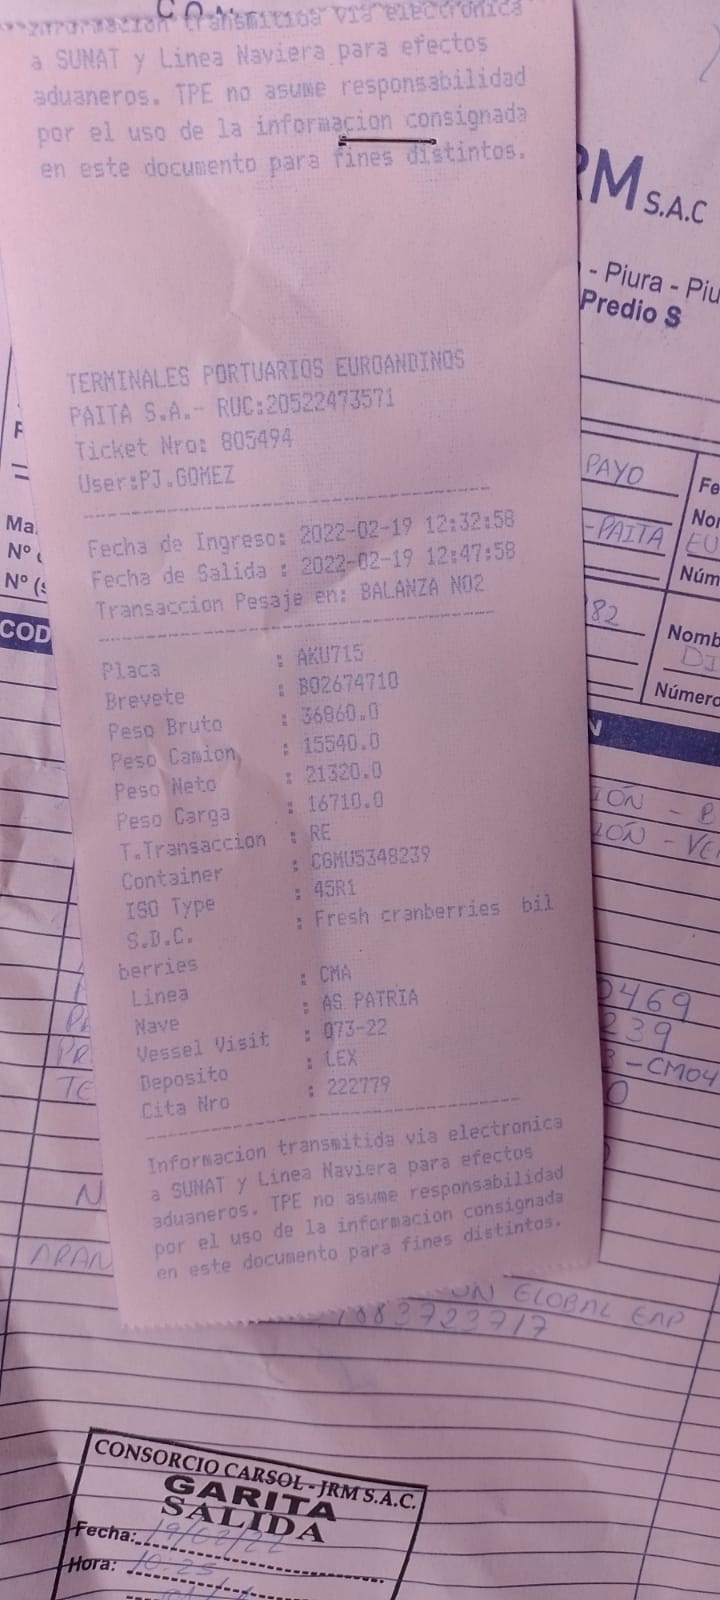 Informacion transmitida via electronica
a SUNAT y Linea Naviera para efectos
aduaneros. TPE no asume responsabilidad
por el uso de la informacion consignada
en este documento para fines distintos.
RM S.A.C
- Piura - Piu
Predio S
TERMINALES PORTUARIOS EUROANDINOS
PAITA S.A.- RUC:20522473571
Ticket Nro: 805494
User:PJ.GOMEZ
Fecha de Ingreso: 2022-02-19 12:32:58
Fecha de Salida : 2022-02-19 12:47:58
Transaccion Pesaje en: BALANZA NO2
Placa : AKU715
Brevete : B02674710
Peso Bruto : 36860.0
Peso Camion : 15540.0
Peso Neto : 21320.0
Peso Carga : 16710.0
T.Transaccion : RE
Container : CGMU5348239
ISO Type : 45R1
S.D.C. : Fresh cranberries bil
berries
Linea : CMA
Nave : AS PATRIA
Vessel Visit : 073-22
Deposito : LEX
Cita Nro : 222779
Informacion transmitida via electronica
a SUNAT y Linea Naviera para efectos
aduaneros. TPE no asume responsabilidad
por el uso de la informacion consignada
en este documento para fines distintos.
PAYO
Fe
-PAITA
Nor
EU
Núm
82
Nomb
DI
Número
Ma
Nº
Nº (s
COD
N
IÓN - B
IÓN - VE
0469
239
-CM04
0
TE
N
ARAN
UN GLOBAL EAP
3723717
CONSORCIO CARSOL - JRM S.A.C.
GARITA
SALIDA
Fecha: 19/02/22
Hora: 10:25